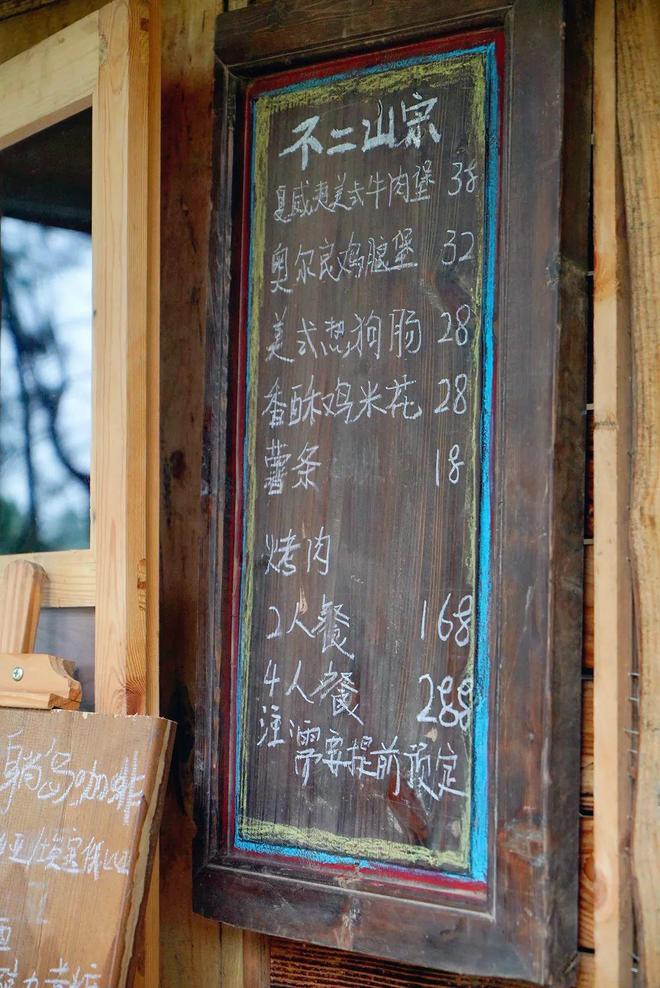 不二山宗
夏威夷美式牛肉堡 38
奥尔良鸡腿堡 32
美式热狗肠 28
香酥鸡米花 28
薯条 18
烤肉
2人餐 168
4人餐 288
注需要提前预定
躺岛咖啡
亚/埃塞俄比亚